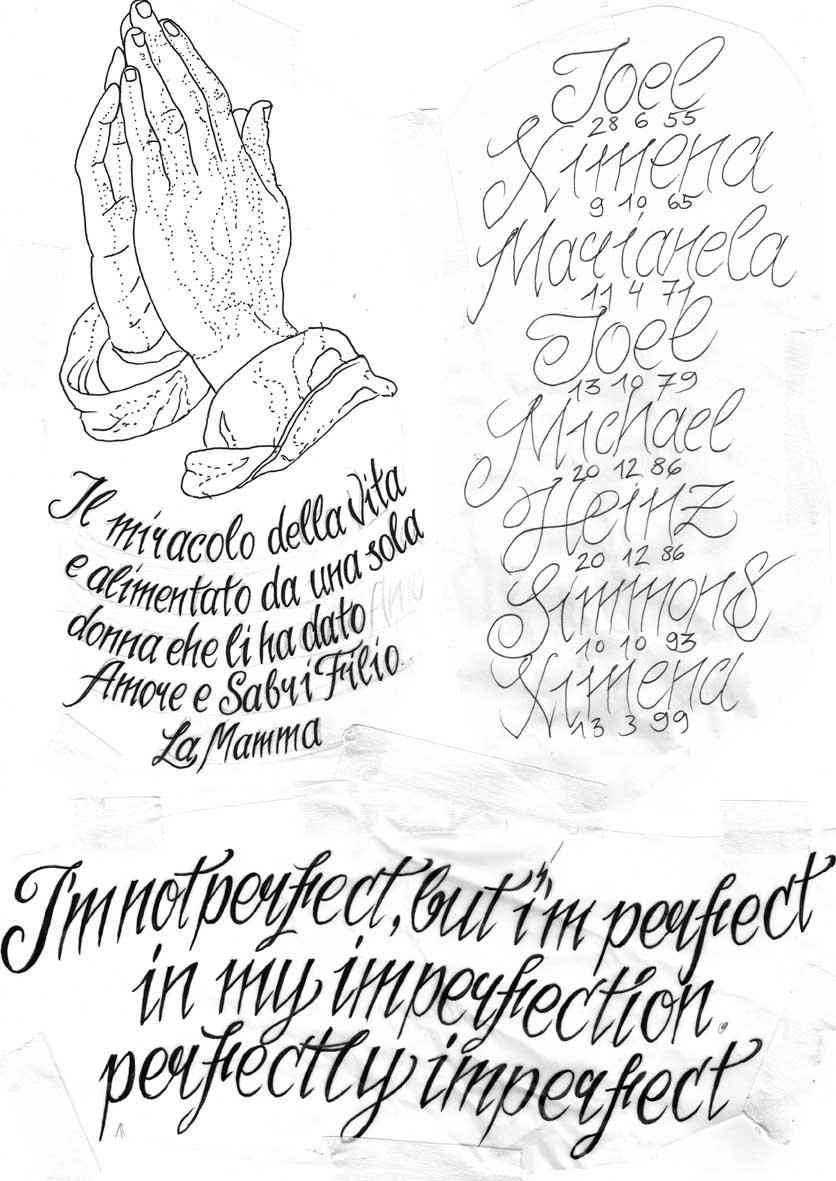 Il miracolo della vita
e alimentato da una sola
donna che li ha dato
Amore e Sabri Filio
La Mamma
Joel
28 6 55
Ximena
9 10 65
Marianela
11 4 71
Joel
13 10 79
Michael
20 12 86
Heinz
20 12 86
Simmons
10 10 93
Ximena
13 3 99
I'm not perfect, but i'm perfect
in my imperfection.
perfectly imperfect